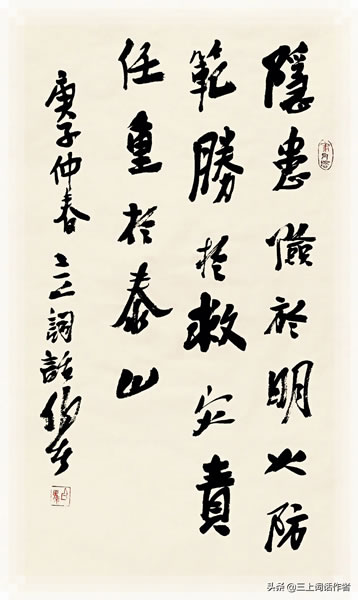 隱患險於明火防
範勝於救灾責
任重於泰山
庚子仲春三上詞話
头条 @三上词话作者